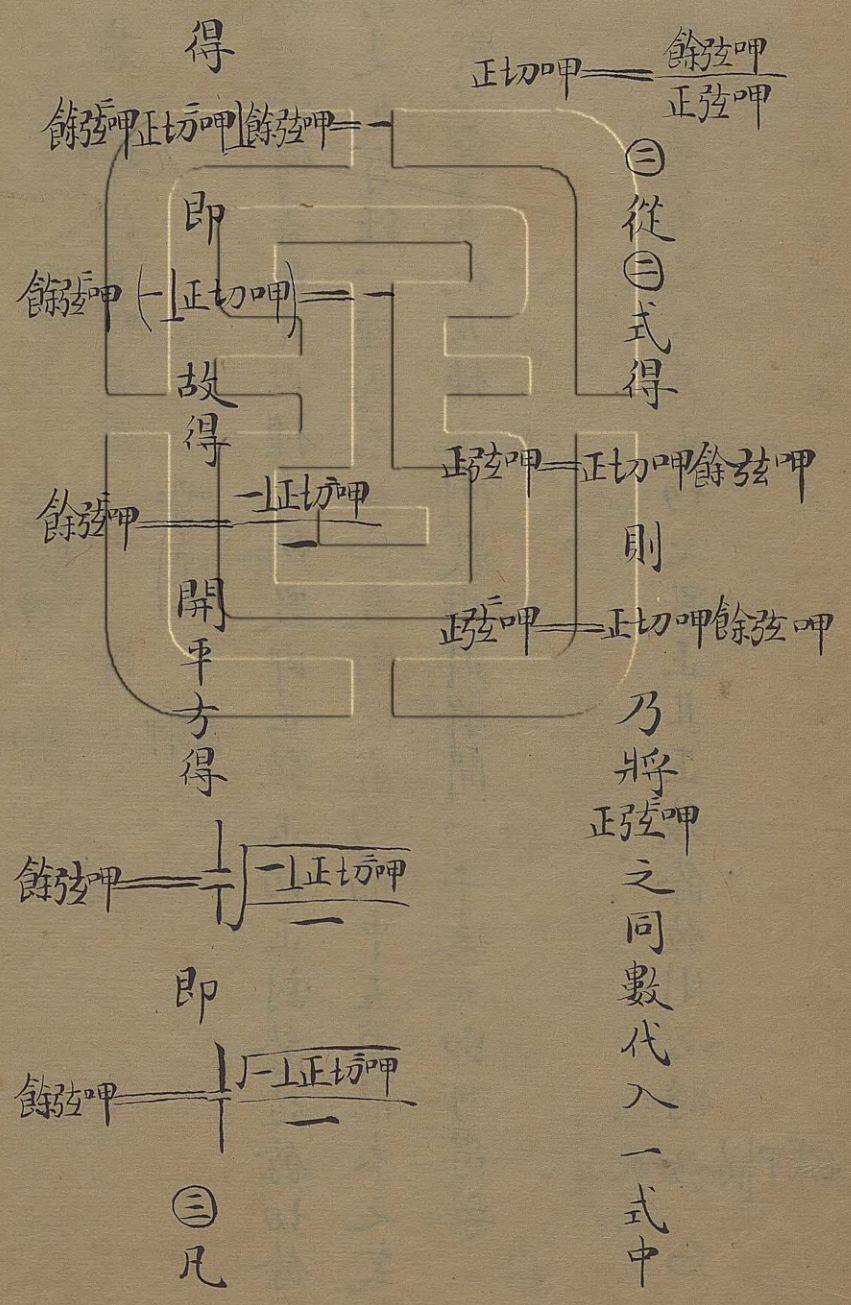 正切呷＝餘弦呷
正弦呷
㊁從㊁式得
正弦呷＝正切呷餘弦呷
則
正弦二呷＝正切呷餘弦呷
乃將
正弦二呷
之同數代入一式中
得
餘弦二呷正切二呷⊥餘弦二呷＝一
即
餘弦二呷(一⊥正切二呷)＝一
故得
餘弦二呷＝一⊥正切二呷
一
開平方得
餘弦呷＝⊥┬√一⊥正切二呷
一
即
餘弦呷＝⊥┬√一⊥正切二呷
一
㊂凡